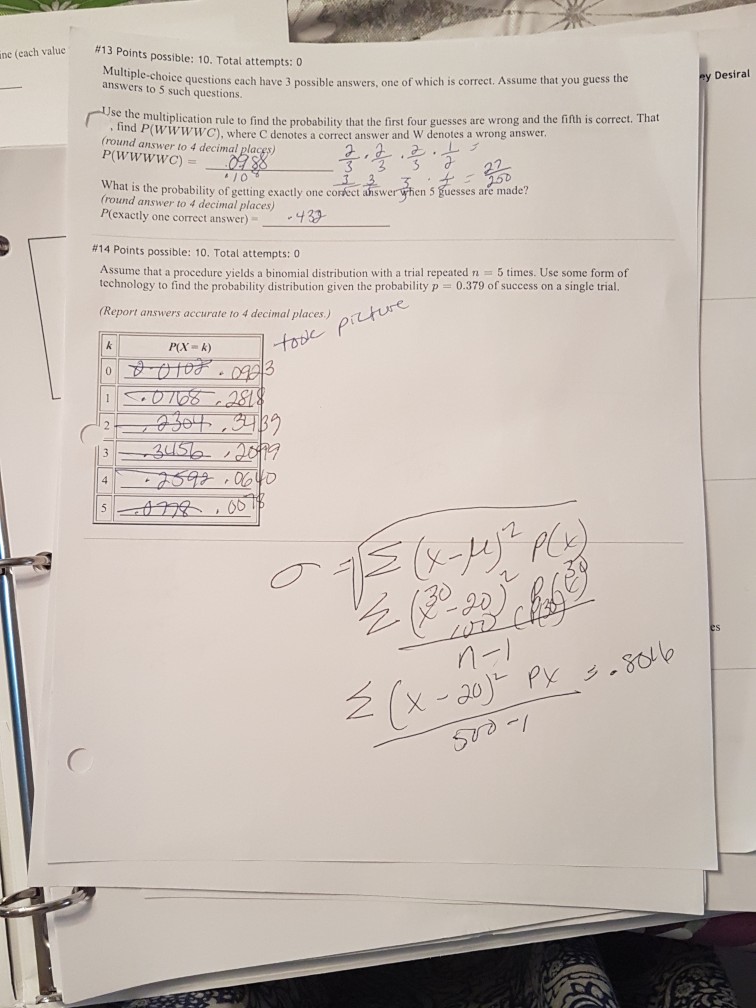 ine (each value
#13 Points possible: 10. Total attempts: 0
Multiple-choice questions each have 3 possible answers, one of which is correct. Assume that you guess the
answers to 5 such questions.
Use the multiplication rule to find the probability that the first four guesses are wrong and the fifth is correct. That
, find P(WWWWC), where C denotes a correct answer and W denotes a wrong answer.
(round answer to 4 decimal places)
P(WWWWC) = .0988
What is the probability of getting exactly one correct answer when 5 guesses are made?
27/250
(round answer to 4 decimal places)
P(exactly one correct answer) = .432
#14 Points possible: 10. Total attempts: 0
Assume that a procedure yields a binomial distribution with a trial repeated n = 5 times. Use some form of
technology to find the probability distribution given the probability p = 0.379 of success on a single trial.
(Report answers accurate to 4 decimal places.)
took picture
k P(X = k)
0 .0923
1 .0768 .2818
2 .2304 .3439
3 .3456 .2099
4 .2592 .0640
5 .0778 .0078
σ = √Σ (x-μ)² P(x)
n-1
Σ (x-20)² Px = .8016
500-1
ey Desiral
es